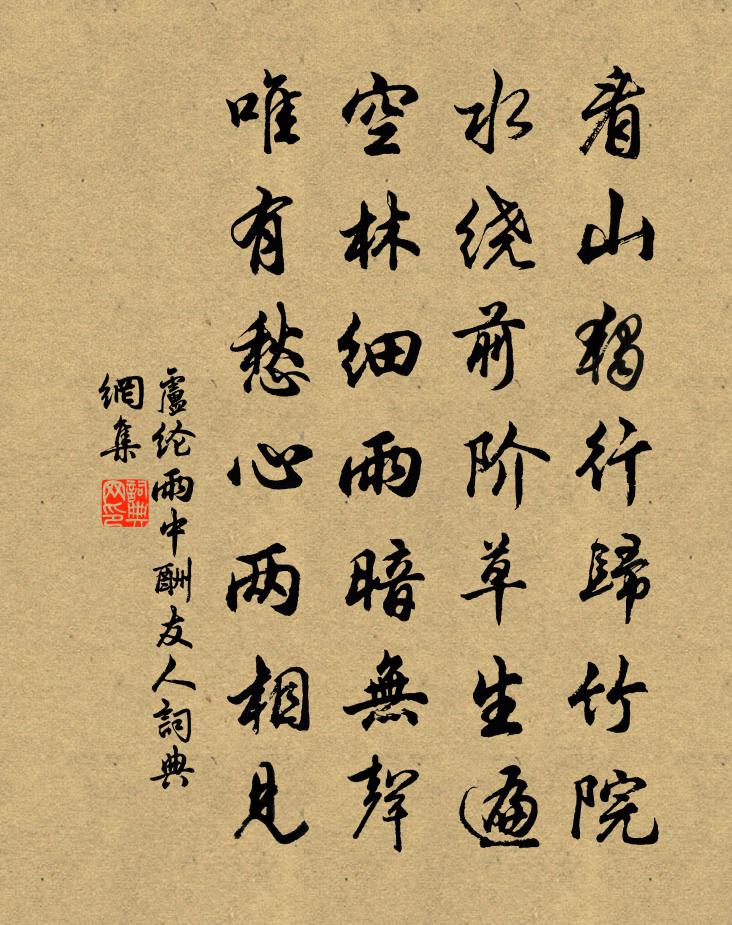 看山独行歸竹院
水绕前阶草生遍
空林细雨暗無聲
唯有愁心两相見
盧纶雨中酬友人詞典
網集
詞典
网印